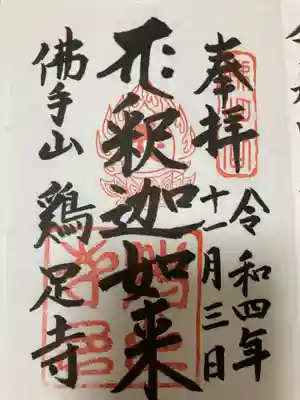 奉拝
令和四年
十一月三日
釈迦如来
佛手山
鶏足寺